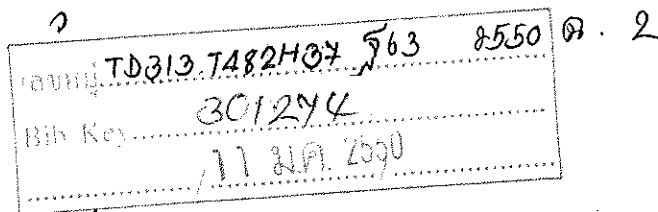 ว
เลขหมู่ TD313.T482H37 ฐ63 2550 ฉ. 2
Bib Key 301274
11 ม.ค. 2550